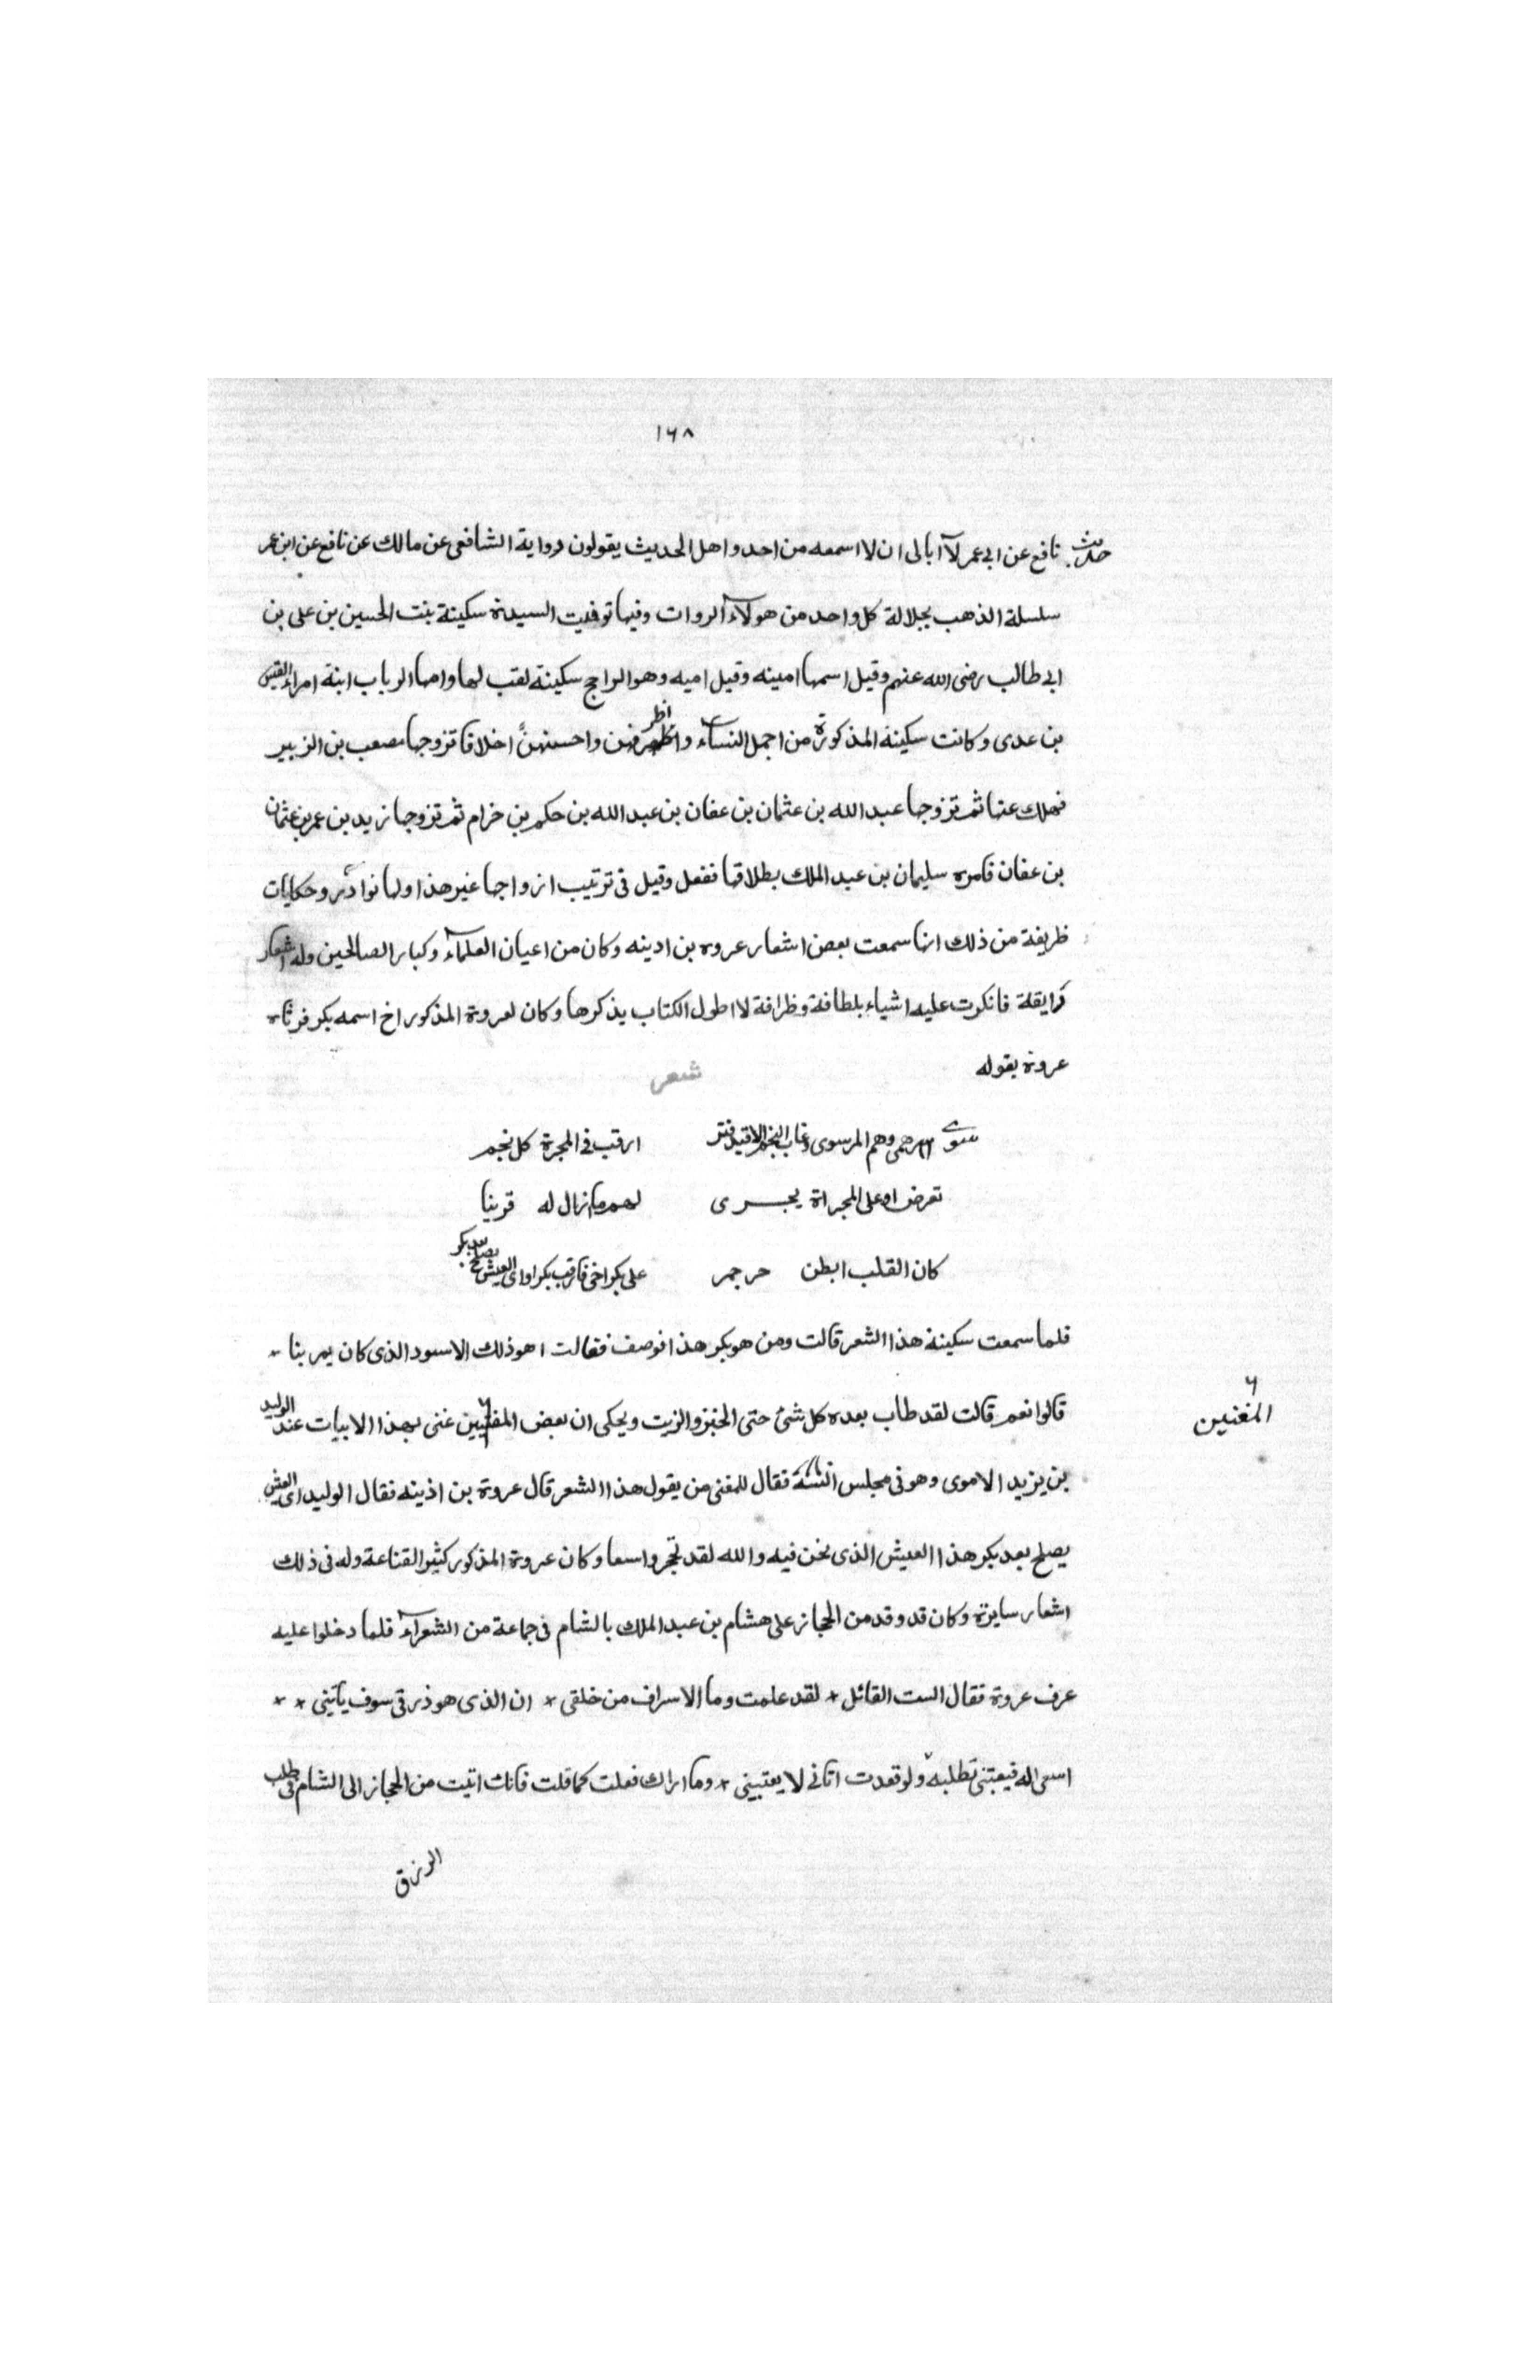 ١٦٨
حديث نافع عن ابى عمر لا ابالى ان لا اسمعه من احد واهل الحديث يقولون رواية الشافعى عن مالك عن نافع عن ابن عمر
سلسلة الذهب بجلالة كل واحد من هولاء الروات وفيها توفيت السيدة سكينة بنت الحسين بن على بن
ابى طالب رضى الله عنهم وقيل اسمها امينه وقيل اميه وهو الراجح سكينة لقب لها وامها الرباب ابنة امراء القيس
بن عدى وكانت سكينة المذكورة من اجمل النساء واظرفهن واحسنهن اخلاقا تزوجها مصعب بن الزبير
فهلك عنها ثم تزوجها عبد الله بن عثمان بن عفان بن عبد الله بن حكم بن خرام ثم تزوجها زيد بن عمر بن عثمان
بن عفان فامره سليمان بن عبد الملك بطلاقها ففعل وقيل فى ترتيب ازواجها غير هذا ولها نوادر وحكايات
ظريفة من ذلك انها سمعت بعض اشعار عروه بن ادينه وكان من اعيان العلماء وكبار الصالحين وله اشعار
رايقة فانكرت عليه اشياء بلطافة وظرافة لا اطول الكتاب يذكرها وكان لعروة المذكور اخ اسمه بكر فرثاه
عروة بقوله
شعر
سرى همى وهم المر سوى وغاب النجم الاقيد فتر ارقب فى المجرة كل نجم
تعرض او على المجراة يجرى لهم ما زال له قرينا
كان القلب ابطن حر جمر على بكر اخى فارقب بكرا واى العيش يصلح بعد بكر
فلما سمعت سكينة هذا الشعر قالت ومن هو بكر هذا فوصف فقالت اهو ذلك الاسود الذى كان يمر بنا
قالوا نعم قالت لقد طاب بعده كل شئ حتى الخبز والزيت ويحكى ان بعض المغنيين غنى بهذا الابيات عند الوليد
المغنين
بن يزيد الاموى وهو فى مجلس انسه فقال للمغنى من يقول هذا الشعر قال عروة بن اذينه فقال الوليد اى العيش
يصلح بعد بكر هذا العيش الذى نحن فيه والله لقد تجر واسعا وكان عروة المذكور كثير القناعة وله فى ذلك
اشعار سايرة وكان قد وفد من الحجاز على هشام بن عبد الملك بالشام فى جماعة من الشعراء فلما دخلوا عليه
عرف عروة فقال الست القائل * لقد علمت وما الاسراف من خلقى * ان الذى هو ذرقى سوف ياتينى * *
اسعى اله فيعتبنى تطلبه ولو قعدت اتانى لا يعتبينى * وما اراك فعلت كما قلت فانك اتيت من الحجاز الى الشام فى طلب
الرزق